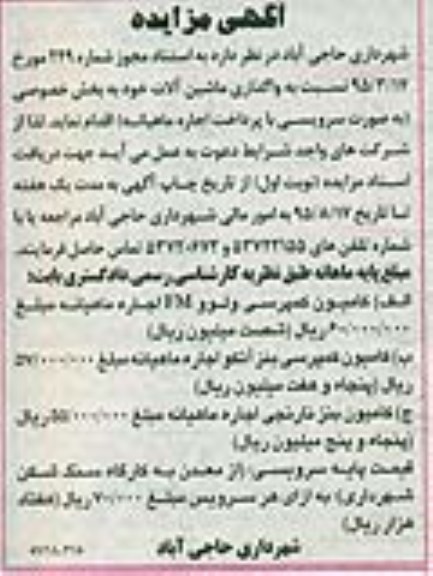 آگهی مزایده
شهرداری حاجی آباد در نظر دارد به استناد مجوز شماره ۲۲۹ مورخ
۹۵/۳/۱۷ نسبت به واگذاری ماشین آلات خود به بخش خصوصی
(به صورت سرویسی با پرداخت اجاره ماهیانه) اقدام نماید. لذا از
شرکت های واجد شرایط دعوت به عمل می آید جهت دریافت
اسناد مزایده (نوبت اول) از تاریخ چاپ آگهی به مدت یک هفته
تا تاریخ ۹۵/۸/۱۷ به امور مالی شهرداری حاجی آباد مراجعه یا با
شماره تلفن های و تماس حاصل فرمایند.
مبلغ پایه ماهانه طبق نظریه کارشناسی رسمی دادگستری بابت:
الف) کامیون کمپرسی ولوو FM اجاره ماهیانه مبلغ
۶۰/۰۰۰/۰۰۰ ریال (شصت میلیون ریال)
ب) کامیون کمپرسی بنز آتکو اجاره ماهیانه مبلغ ۵۷/۰۰۰/۰۰۰
ریال (پنجاه و هفت میلیون ریال)
ج) کامیون بنز نارنجی اجاره ماهیانه مبلغ ۵۵/۰۰۰/۰۰۰ ریال
(پنجاه و پنج میلیون ریال)
قیمت پایه سرویسی: (از معدن به کارگاه سنگ شکن
شهرداری) به ازای هر سرویس مبلغ ۷۰/۰۰۰ ریال (هفتاد
هزار ریال)
شهرداری حاجی آباد